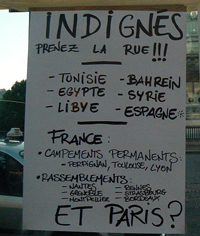 INDIGNÉS
PRENEZ LA RUE!!!
- TUNISIE - BAHREIN
- EGYPTE - SYRIE
- LIBYE - ESPAGNE
FRANCE :
• CAMPEMENTS PERMANENTS :
- PERPIGNAN, TOULOUSE, LYON
• RASSEMBLEMENTS :
- NANTES - RENNES
- GRENOBLE - STRASBOURG
- MONTPELLIER - BORDEAUX
ET PARIS?